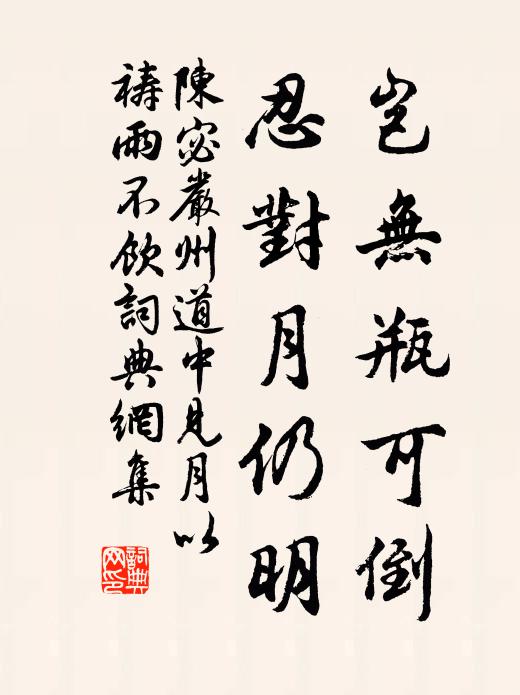 豈無瓶可倒
忍對月仍明
陳宓嚴州道中見月以
禱雨不飲詞典網集
詞典網印